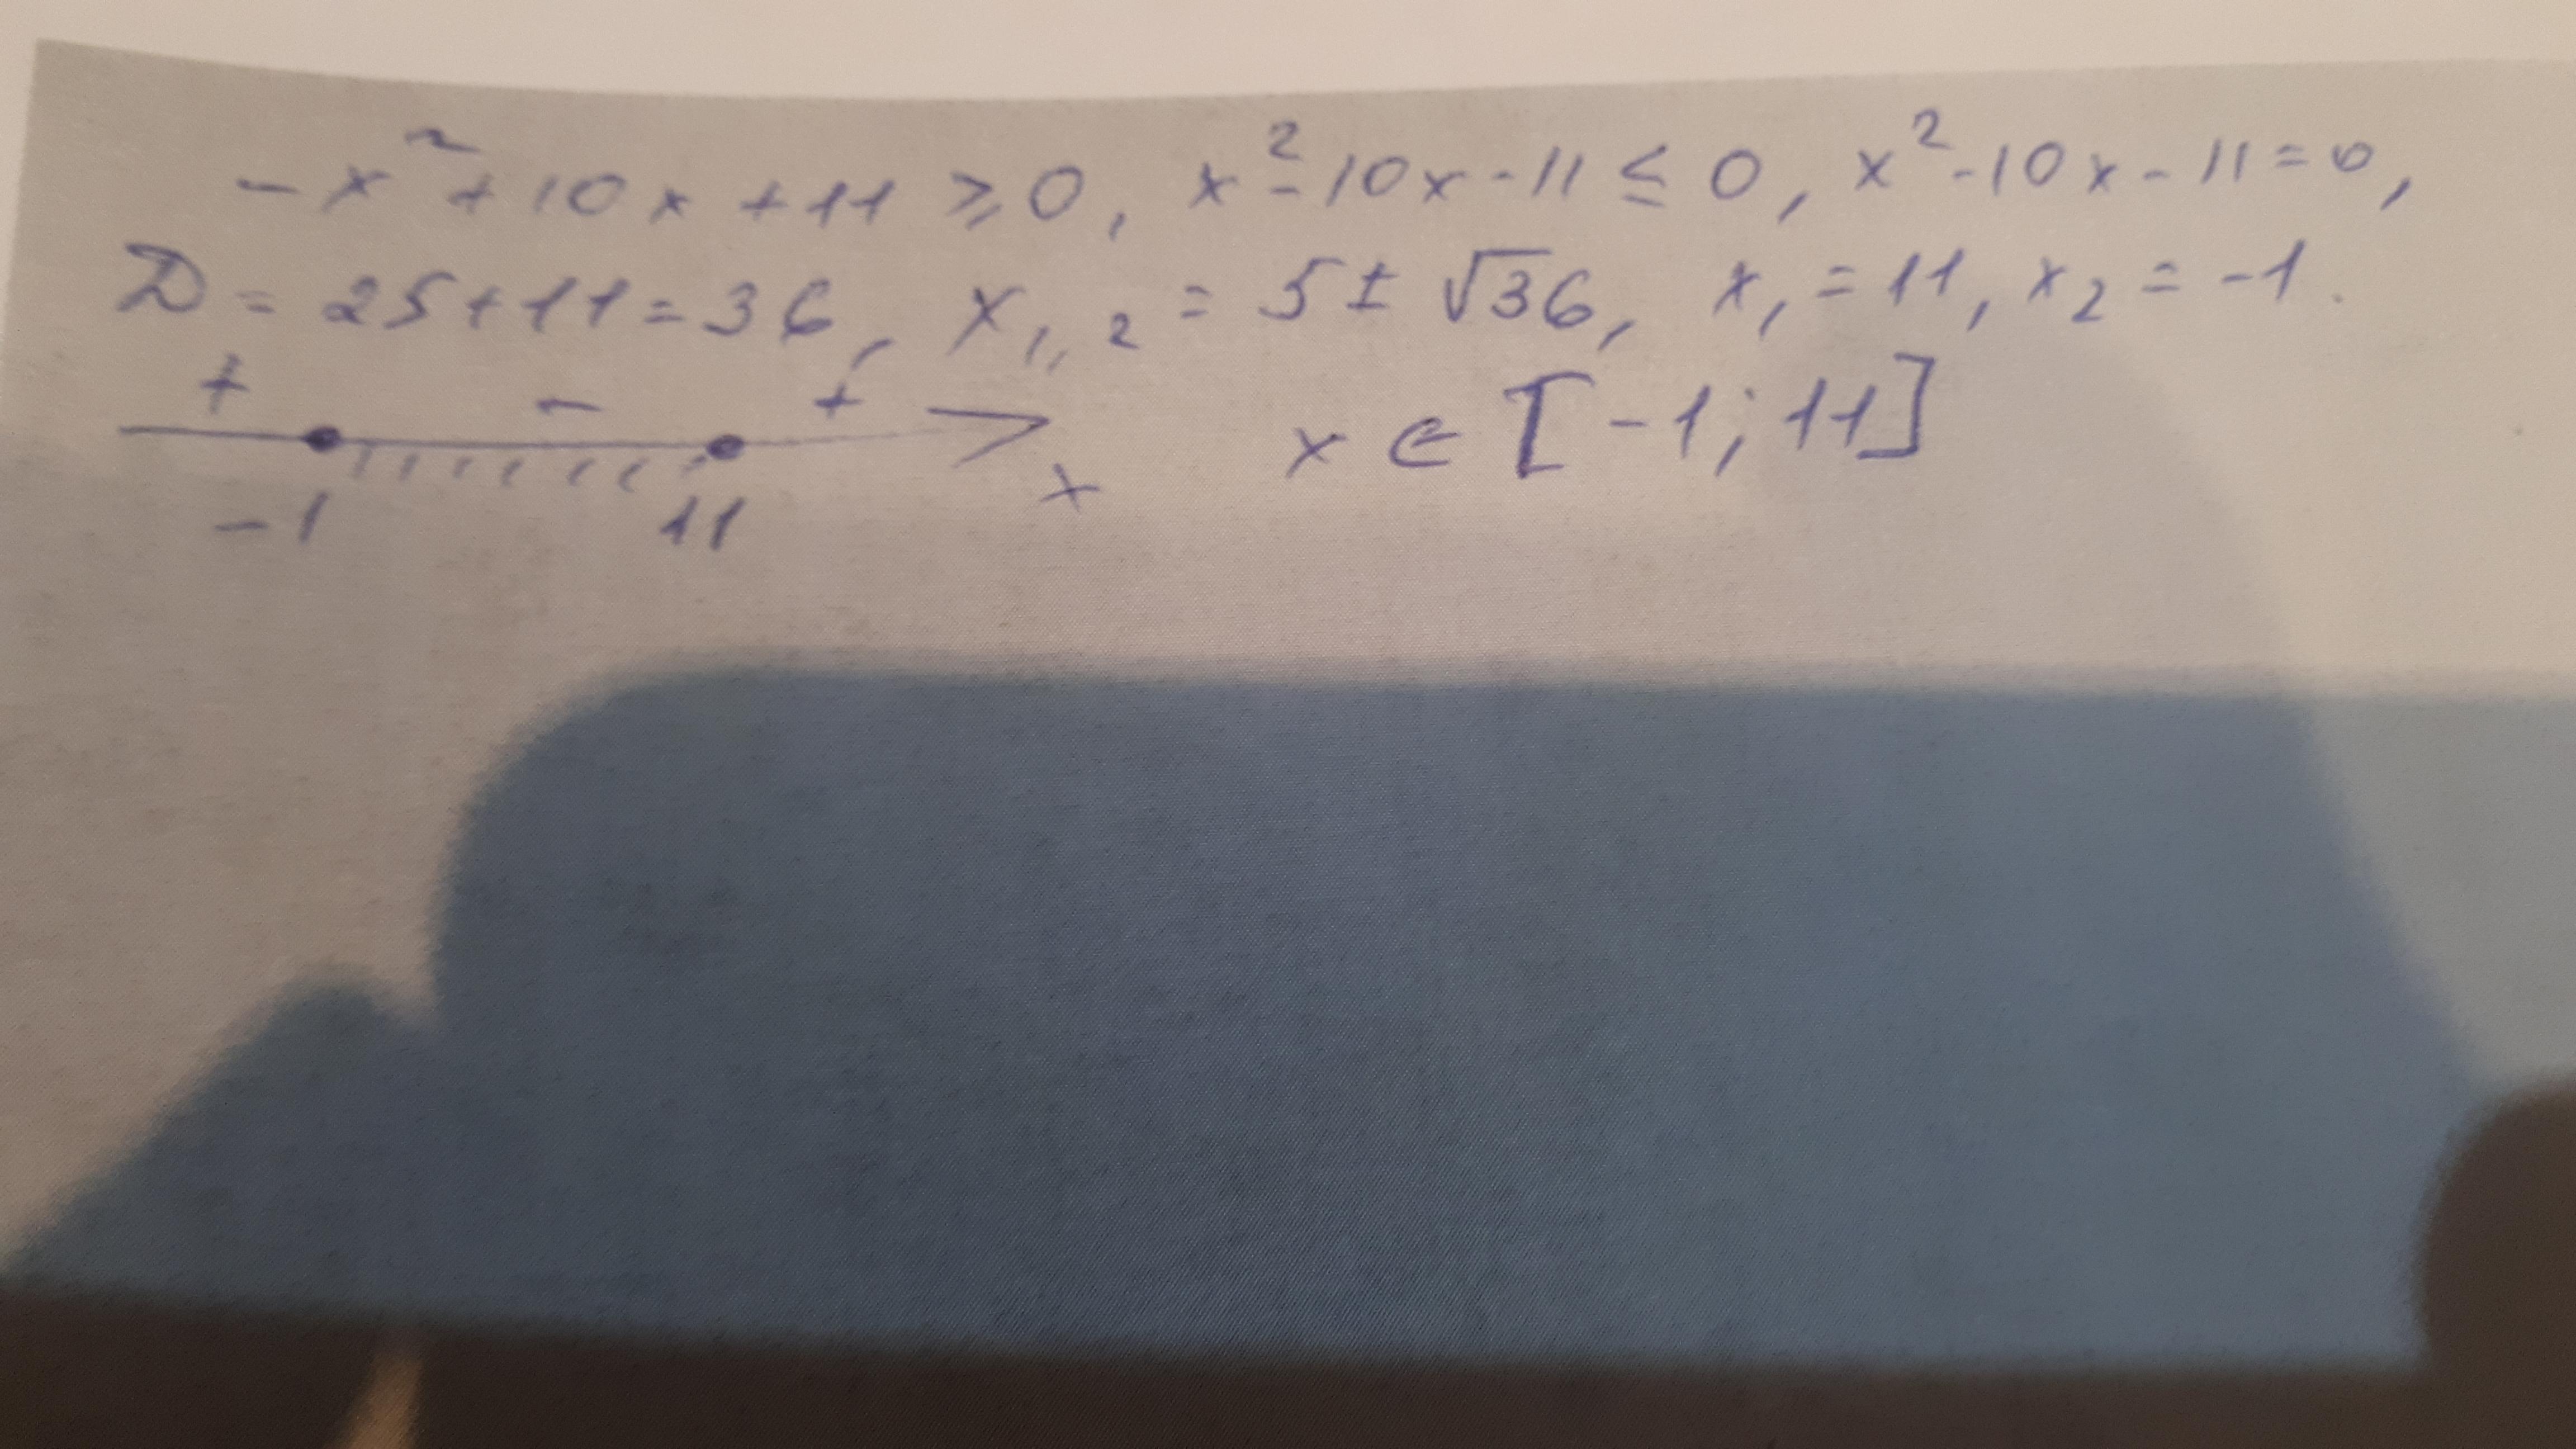 -x²+10x+11≥0, x²-10x-11≤0, x²-10x-11=0,
D=25+11=36, x₁,₂=5±√36, x₁=11, x₂=-1.
+ - +
x∈[-1;11]
-1 11 x